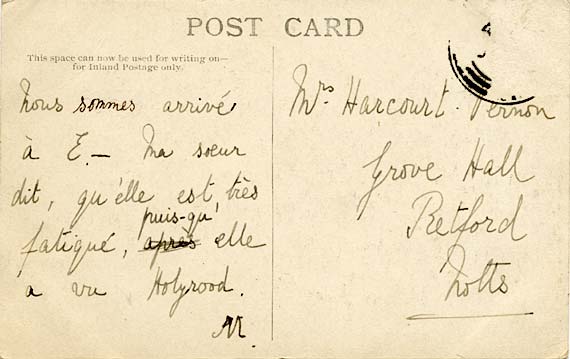 POST CARD
This space can now be used for writing on—
for Inland Postage only.
Nous sommes arrivé
à E.— Ma soeur
dit, qu'elle est, très
puis-qu'
fatigué, après elle
a vu Holyrood.
M.
Mrs Harcourt. Vernon
Grove Hall
Retford
Notts